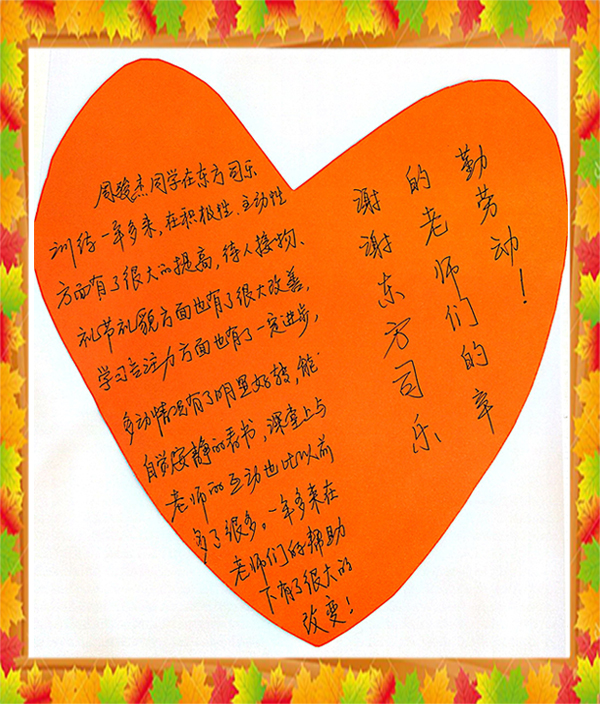 周骏杰同学在东方司乐
训练一年多来,在积极性、主动性
方面有了很大的提高,待人接物、
礼节礼貌方面也有了很大改善,
学习专注力方面也有了一定进步,
多动情况有了明显好转,能
自觉安静的看书,课堂上与
老师的互动也比以前
多了很多。一年多来在
老师们的帮助
下有了很大的
改变!
谢谢东方司乐
的老师们的辛
勤劳动!